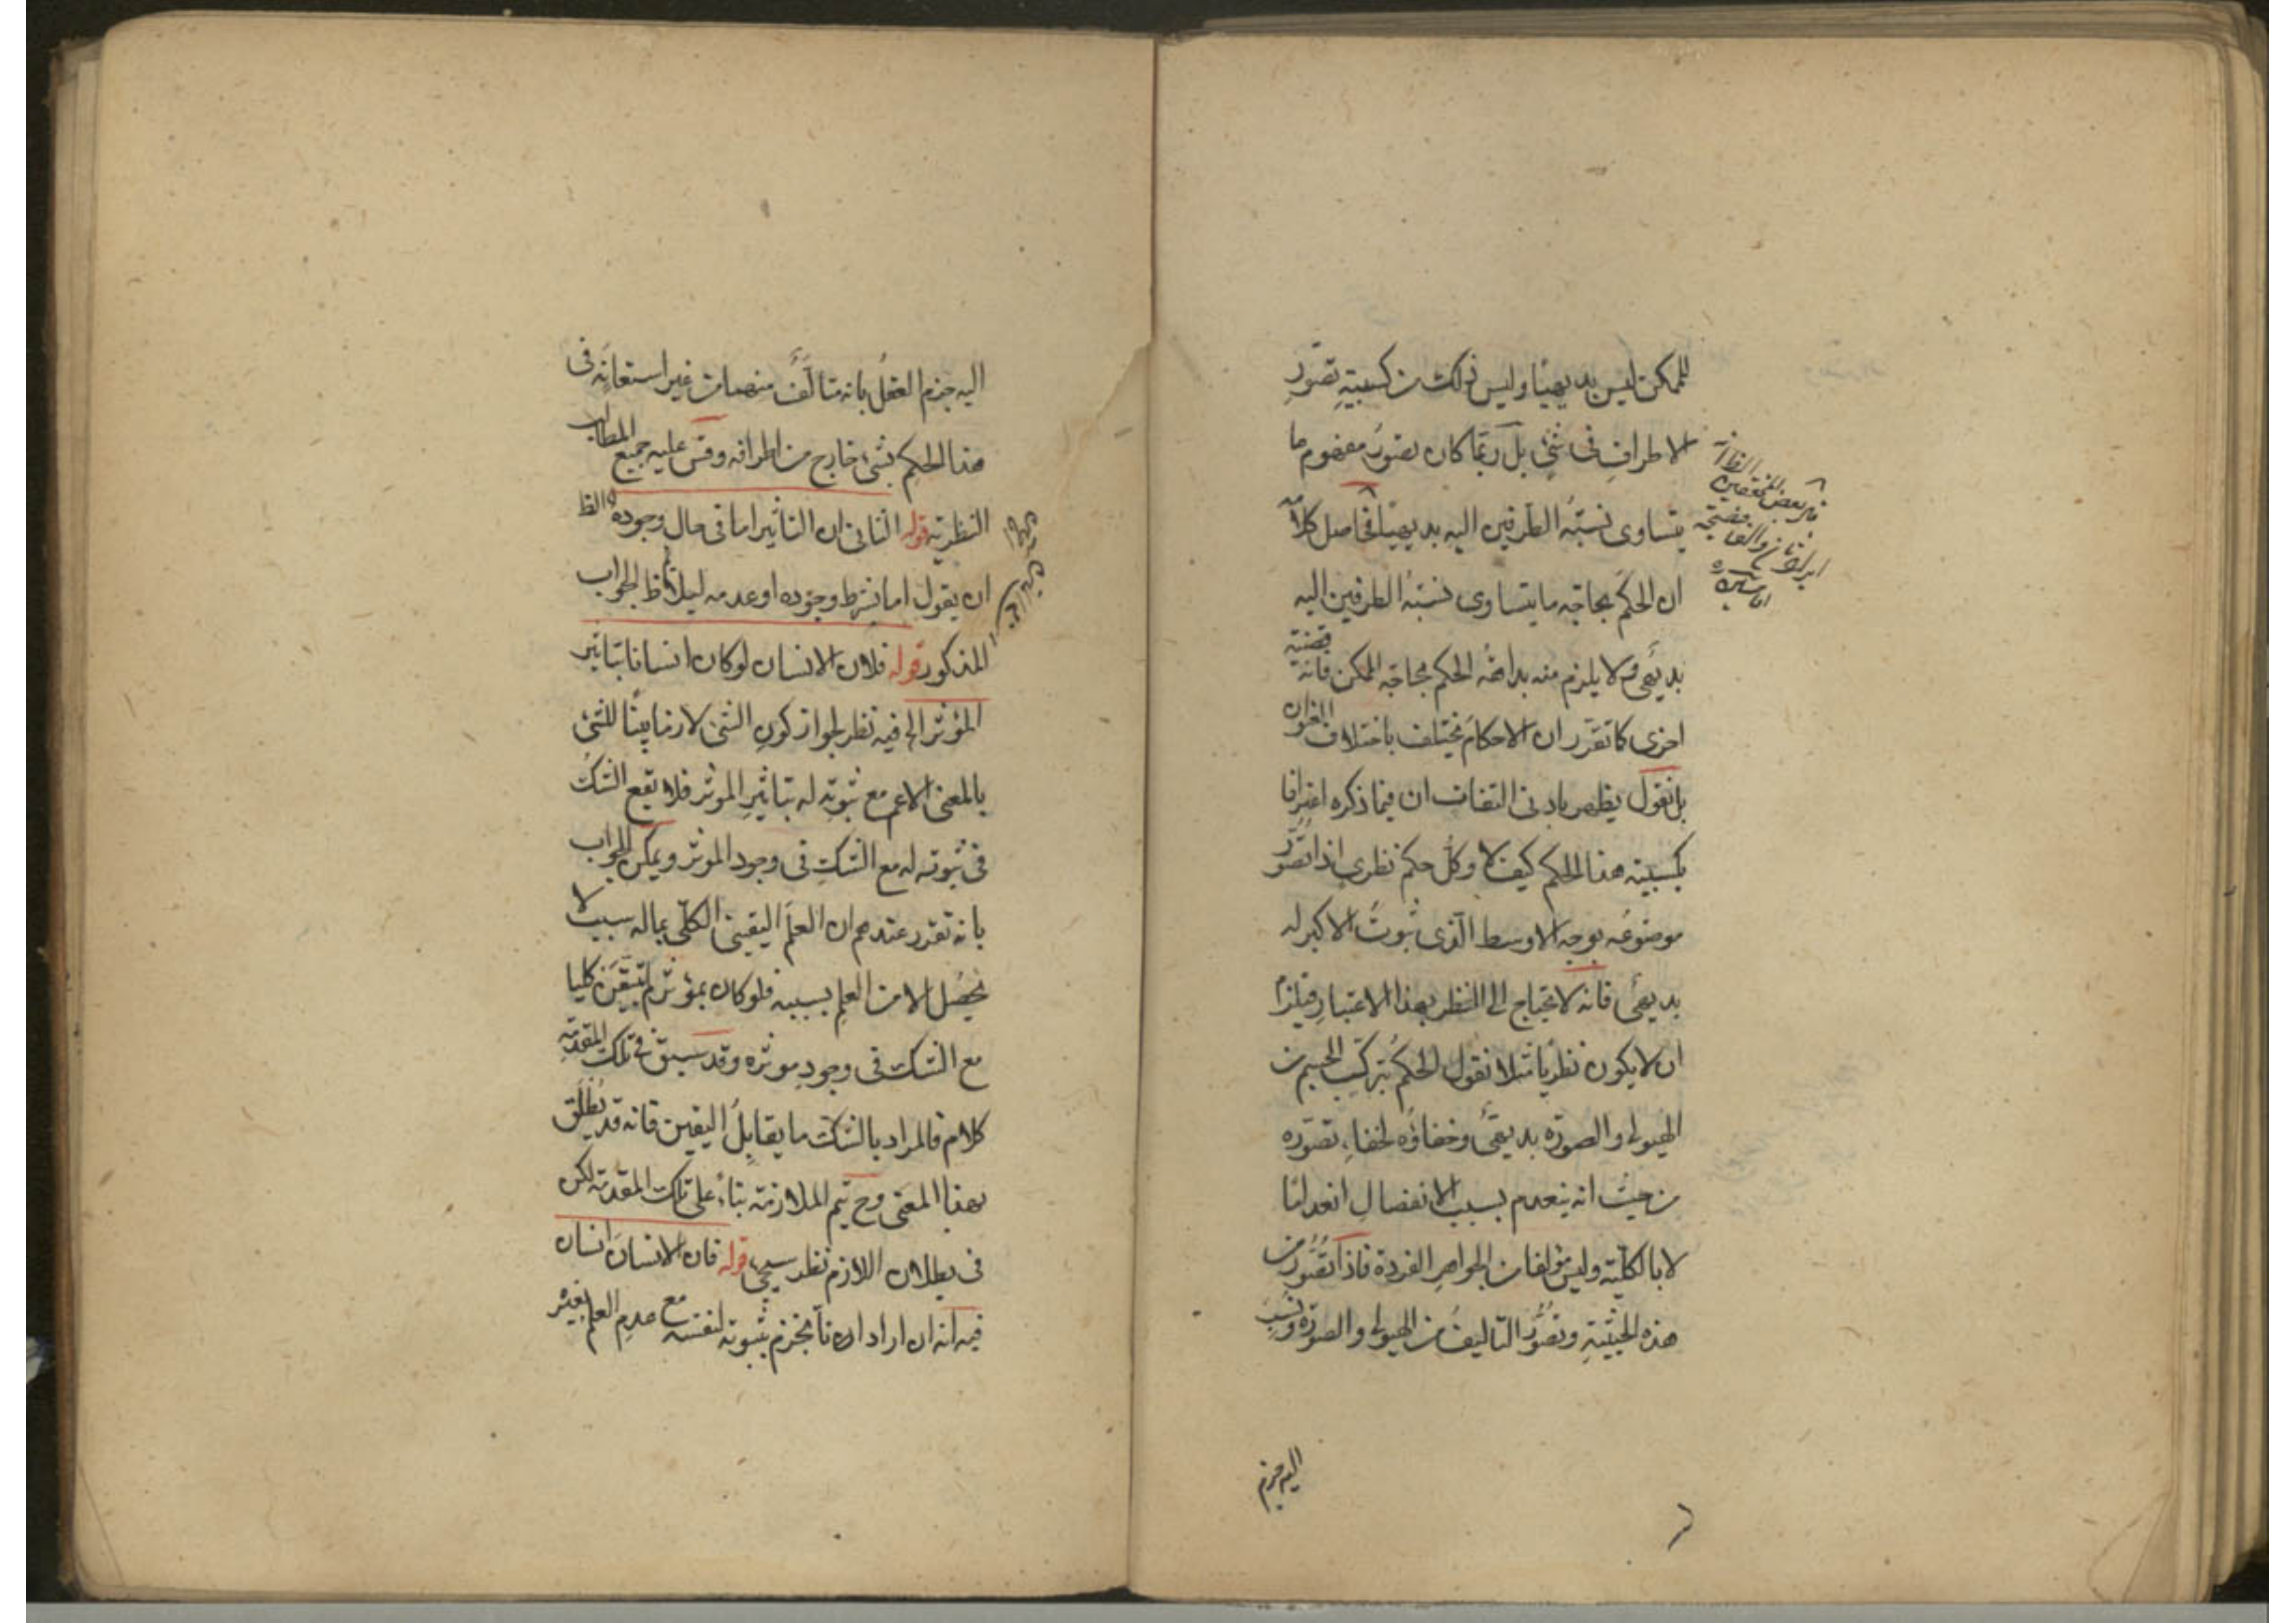 للممكن ليس بديهيا وليس ذلك من كسبية تصور
الاطراف فى شئ بل ربما كان تصور مفهوم ما
يتساوى نسبة الطرفين اليه بديهيا فحاصل كلامه
ان الحكم بحاجة ما يتساوى نسبة الطرفين اليه
بديهى ولا يلزم منه بداهة الحكم بحاجة الممكن فانه قضية
اخرى كما تقرر ان الاحكام تختلف باختلاف العنوان
بل نقول يظهر بادنى التفات ان فيما ذكره اعترافا
بكسبية هذا الحكم كيف لا وكل حكم نظرى اذا تصور
موضوعه بوجه الاوسط الذى ثبوت الاكبر له
بديهى فانه لا يحتاج الى النظر بهذا الاعتبار فيلزم
ان لا يكون نظريا مثلا نقول الحكم بتركب الجسم من
الهيولى والصورة بديهى وخفاؤه لخفاء تصوره
من حيث انه ينعدم بسبب الانفصال انعداما
لا بالكلية وليس مؤلفا من الجواهر الفردة فاذا تصور من
هذه الحيثية وتصور التاليف من الهيولى والصورة ونسب
اليه جزم
اليه جزم العقل بانه متألف منهما من غير استعانة فى
هذا الحكم بشئ خارج من اطرافه وقس عليه جميع المطالب
النظرية قوله الثانى ان التأثير اما فى حال وجوده الظ
ان يقول اما بشرط وجوده او عدمه ليلائم ظ الجواب
المذكور قوله فلان الانسان لو كان انسانا بتاثير
المؤثر الخ فيه نظر لجواز كون الشئ لازما بينا للشئ
بالمعنى الاعم مع ثبوته له بتاثير الموثر فلا يقع الشك
فى ثبوته له مع الشك فى وجود الموثر ويمكن الجواب
بانه تقرر عندهم ان العلم اليقينى الكلى بماله سبب لا
يحصل الا من العلم بسببه فلو كان بمؤثر لم يتيقن كليا
مع الشك فى وجود موثره وقد سبق فى تلك المقدمة
كلام فالمراد بالشك ما يقابل اليقين فانه قد يطلق
بهذا المعنى وح يتم الملازمة بناء على تلك المقدمة لكن
فى بطلان اللازم نظر سيجئ قوله فان الانسان انسان
فيه انه ان اراد انا نجزم بثبوته لنفسه مع عدم العلم بغيره